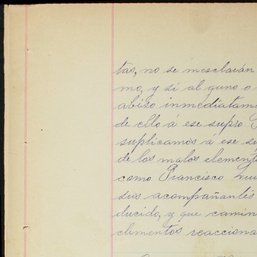 tas, no se mesclarán
mo, y si al guno o
abizo inmediatam
de ello á ese supro
suplicamos á ese s
de los malos element
como Francisco
sus acompañantes
ducido, y que camin
elementos reacciona